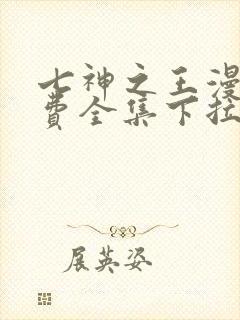 七神之王漫
费全集下拉
展英姿